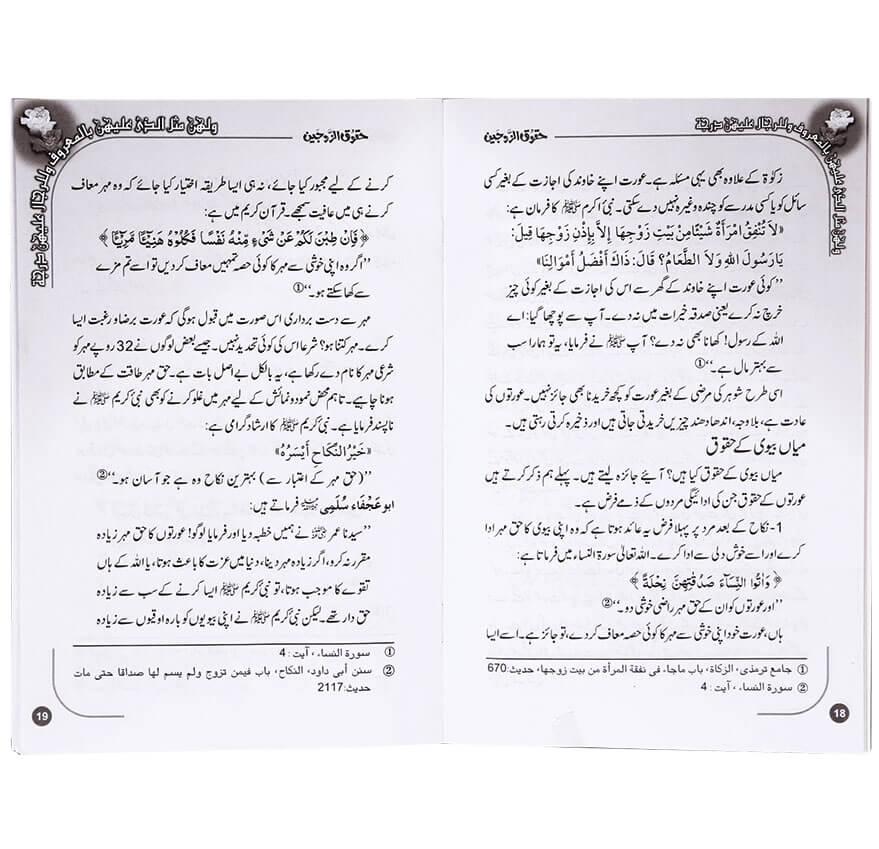 ولهن مثل الذى عليهن بالمعروف وللرجال عليهن درجة
حقوق الزوجین
زکوٰۃ کے علاوہ بھی یہی مسئلہ ہے۔ عورت اپنے خاوند کی اجازت کے بغیر کسی
سائل کو یا کسی مدرسے کو چندہ وغیرہ نہیں دے سکتی۔ نبی اکرم ﷺ کا فرمان ہے:
«لاَ تُنْفِقُ امْرَأَةٌ شَيْئًا مِنْ بَيْتِ زَوْجِهَا إِلاَّ بِإِذْنِ زَوْجِهَا قِيلَ:
يَارَسُولَ اللهِ وَلاَ الطَّعَامُ؟ قَالَ: ذَاكَ أَفْضَلُ أَمْوَالِنَا»
’’کوئی عورت اپنے خاوند کے گھر سے اس کی اجازت کے بغیر کوئی چیز
خرچ نہ کرے یعنی صدقہ خیرات میں نہ دے۔ آپ سے پوچھا گیا: اے
اللہ کے رسول! کھانا بھی نہ دے؟ آپ ﷺ نے فرمایا، یہ تو ہمارا سب
سے بہتر مال ہے۔‘‘①
اسی طرح شوہر کی مرضی کے بغیر عورت کو کچھ خریدنا بھی جائز نہیں۔ عورتوں کی
عادت ہے، بلاوجہ، اندھا دھند چیزیں خریدتی جاتی ہیں اور ذخیرہ کرتی رہتی ہیں۔
میاں بیوی کے حقوق
میاں بیوی کے حقوق کیا ہیں؟ آیئے جائزہ لیتے ہیں۔ پہلے ہم ذکر کرتے ہیں
عورتوں کے حقوق جن کی ادائیگی مردوں کے ذمے فرض ہے۔
1- نکاح کے بعد مرد پر پہلا فرض یہ عائد ہوتا ہے کہ وہ اپنی بیوی کا حق مہر ادا
کرے اور اسے خوش دلی سے ادا کرے۔ اللہ تعالیٰ سورۃ النساء میں فرماتا ہے:
﴿وَاٰتُوا النِّسَآءَ صَدُقٰتِهِنَّ نِحْلَةً﴾
’’اور عورتوں کو ان کے حق مہر راضی خوشی دو۔‘‘②
ہاں، عورت خود اپنی خوشی سے مہر کا کوئی حصہ معاف کر دے، تو جائز ہے۔ اسے ایسا
① جامع ترمذی، الزکاة، باب ماجاء فی نفقة المرأة من بیت زوجها، حدیث:670
② سورة النساء، آیت: 4
18
ولهن مثل الذى عليهن بالمعروف وللرجال عليهن درجة
حقوق الزوجین
کرنے کے لیے مجبور کیا جائے، نہ ہی ایسا طریقہ اختیار کیا جائے کہ وہ مہر معاف
کرنے ہی میں عافیت سمجھے۔ قرآن کریم میں ہے:
﴿فَاِنْ طِبْنَ لَكُمْ عَنْ شَىْءٍ مِّنْهُ نَفْسًا فَكُلُوْهُ هَنِيْٓئًا مَّرِيْٓئًا﴾
’’اگر وہ اپنی خوشی سے مہر کا کوئی حصہ تمہیں معاف کر دیں تو اسے تم مزے
سے کھا سکتے ہو۔‘‘①
مہر سے دست برداری اس صورت میں قبول ہوگی کہ عورت برضا و رغبت ایسا
کرے۔ مہر کتنا ہو؟ شرعا اس کی کوئی تحدید نہیں۔ جیسے بعض لوگوں نے 32 روپے مہر کو
شرعی مہر کا نام دے رکھا ہے، یہ بالکل بے اصل بات ہے۔ حق مہر طاقت کے مطابق
ہونا چاہیے۔ تاہم محض نمود و نمائش کے لیے مہر میں غلو کرنے کو بھی نبی کریم ﷺ نے
ناپسند فرمایا ہے۔ نبی کریم ﷺ کا ارشاد گرامی ہے:
«خَيْرُ النِّكَاحِ أَيْسَرُهُ»
’’(حق مہر کے اعتبار سے) بہترین نکاح وہ ہے جو آسان ہو۔‘‘②
ابو عَجْفَاء سُلَمِی رحمہ اللہ فرماتے ہیں:
’’سیدنا عمر رضی اللہ عنہ نے ہمیں خطبہ دیا اور فرمایا لوگو! عورتوں کا حق مہر زیادہ
مقرر نہ کرو، اگر زیادہ مہر دینا، دنیا میں عزت کا باعث ہوتا، یا اللہ کے ہاں
تقوے کا موجب ہوتا، تو نبی کریم ﷺ ایسا کرنے کے سب سے زیادہ
حق دار تھے۔ لیکن نبی کریم ﷺ نے اپنی بیویوں کو بارہ اوقیوں سے زیادہ
① سورة النساء، آیت: 4
② سنن أبی داود، النکاح، باب فیمن تزوج ولم یسم لها صداقا حتی مات
حدیث:2117
19